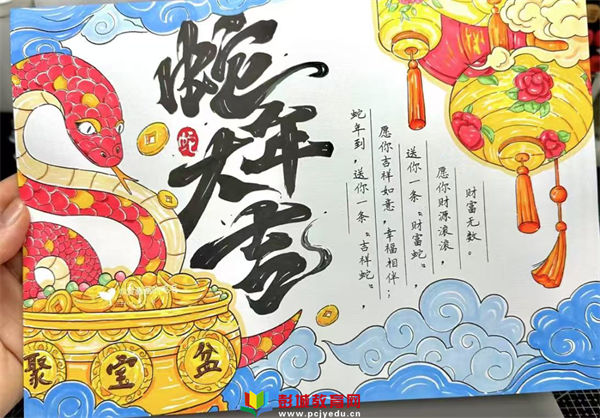 蛇年大吉
蛇
蛇年到，送你一条“吉祥蛇”，
愿你吉祥如意，幸福相伴；
送你一条“财富蛇”，
愿你财源滚滚，
财富无数。
聚宝盆
彭城教育网
www.pcjyedu.cn